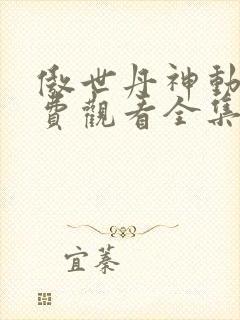 傲世丹神動
費觀看全集
宜蓁